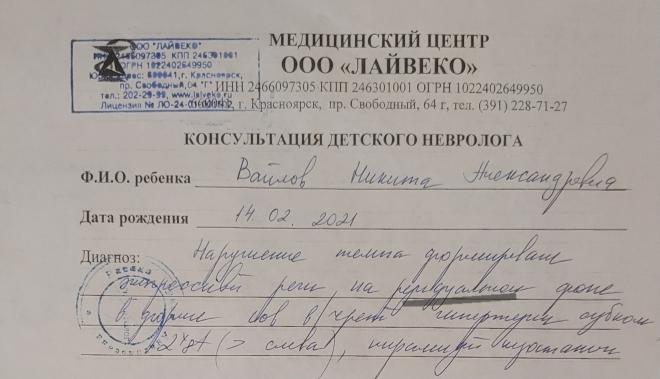 МЕДИЦИНСКИЙ ЦЕНТР
ООО «ЛАЙВЕКО»
ИНН 2466097305 КПП 246301001 ОГРН 1022402649950
г. Красноярск, пр. Свободный, 64 г, тел. (391) 228-71-27
ООО "ЛАЙВЕКО"
2466097305 КПП 246301001
ОГРН 1022402649950
660041, г. Красноярск,
пр. Свободный, 64 "Г"
тел.: 202-29-99, www.laiveko.ru
Лицензия № ЛО-24-01
КОНСУЛЬТАЦИЯ ДЕТСКОГО НЕВРОЛОГА
Ф.И.О. ребенка Вайлов Никита Александрович
Дата рождения 14.02.2021
Диагноз: Нарушение темпа формирован
экспрессивной речи, на резидуальном фоне
в форме
(> слева),